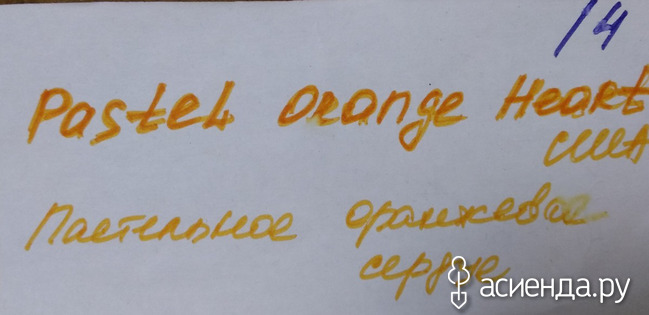 14
Pastel Orange Heart
США
Пастельное оранжевое
сердце
асиенда.ру